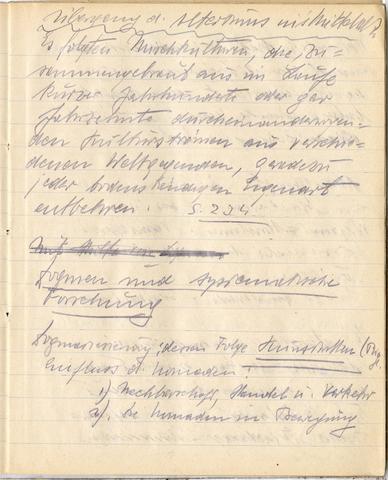 Übergang d. Altertums ins Mittelalter
Es folgten Mischkulturen, die zu-
sammengebraut aus im Laufe
kurzer Jahrhunderte oder gar
Jahrzehnte durcheinander
den Kulturströmen aus verschie-
denen Weltgegenden, geradezu
jeder bodenständigen Eigenart
entbehren. S. 234
Dogmen und systematische
Forschung
Dogmatisierung; deren Folge
Einfluss d. Nomaden:
1) Nachbarschaft, Handel u. Verkehr
2) die Nomaden in Bewegung